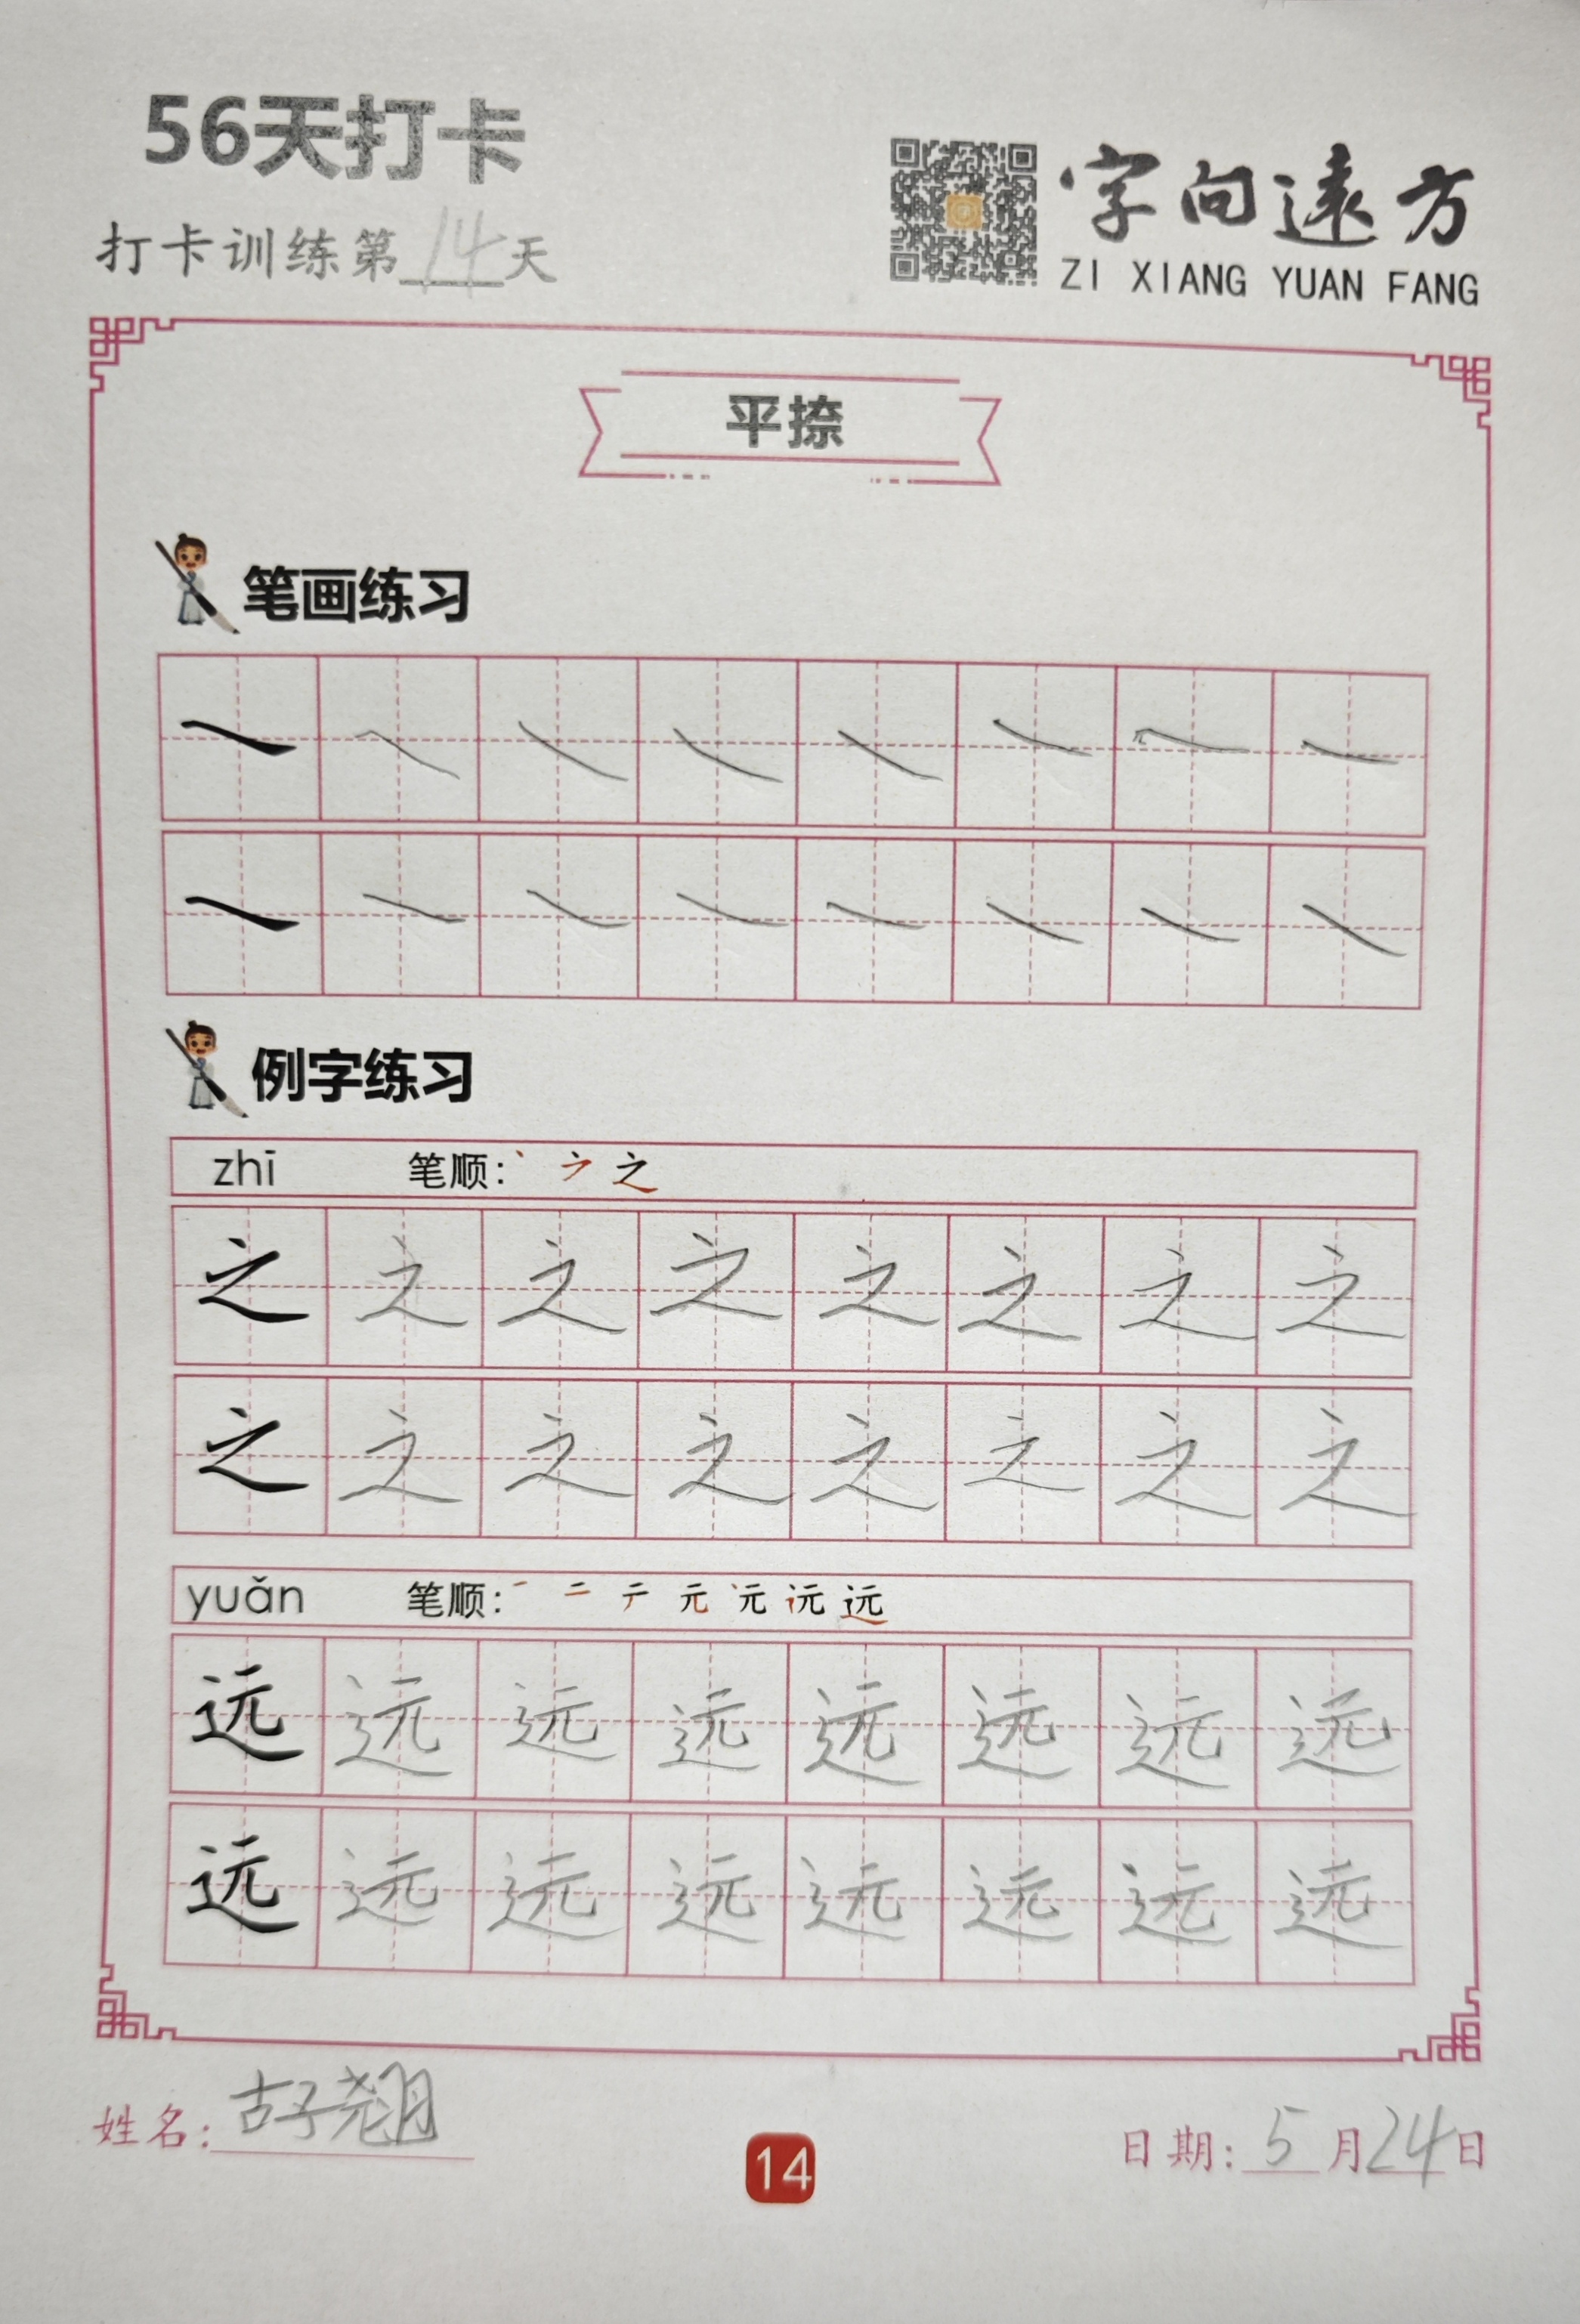 56天打卡
打卡训练第14天
字向遠方
ZI XIANG YUAN FANG
平捺
笔画练习
例字练习
zhī 笔顺: 之
之 之 之 之 之 之 之 之
之 之 之 之 之 之 之 之
yuǎn 笔顺: 一 二 テ 元 远
远 远 远 远 远 远 远 远
远 远 远 远 远 远 远 远
姓名: 胡子翘
14
日期: 5月24日